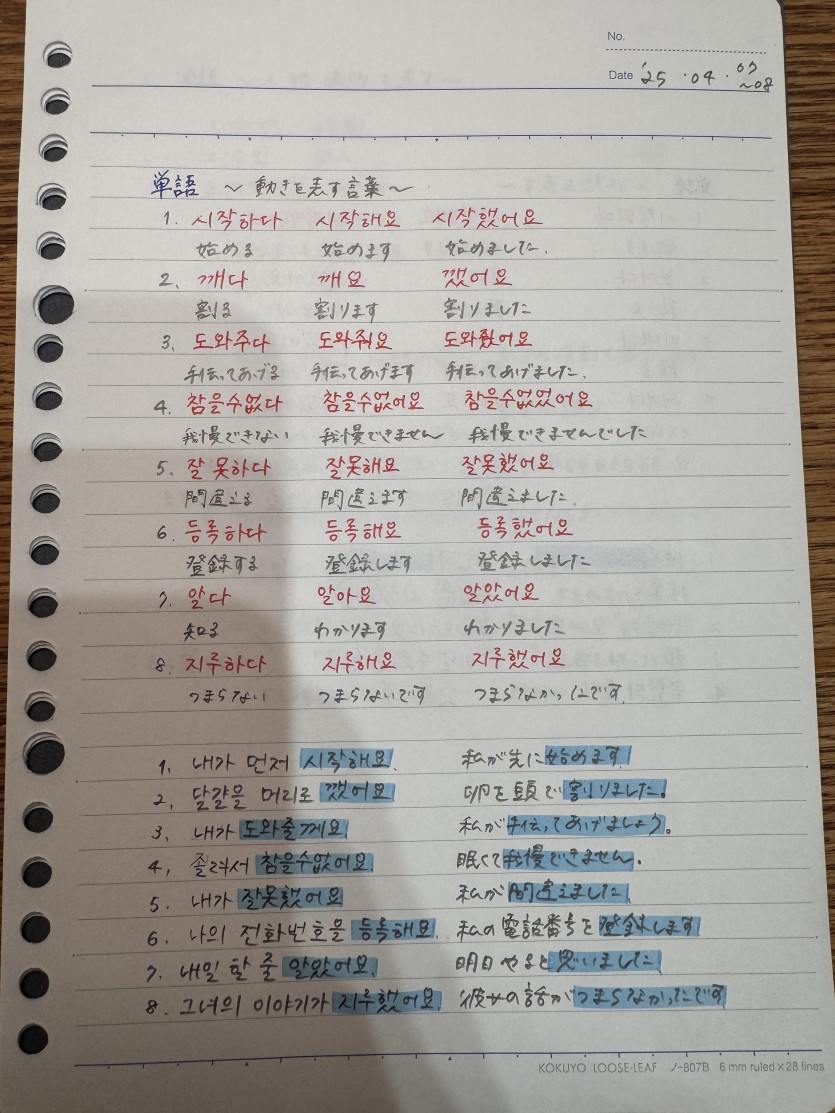 No.
Date '25 ・04・07
~08
単語 ~動きを表す言葉~
1. 시작하다 시작해요 시작했어요
始める 始めます 始めました.
2. 깨다 깨요 깼어요
割る 割ります 割りました
3. 도와주다 도와줘요 도와줬어요
手伝ってあげる 手伝ってあげます 手伝ってあげました.
4. 참을수없다 참을수없어요 참을수없었어요
我慢できない 我慢できません 我慢できませんでした
5. 잘못하다 잘못해요 잘못했어요
間違える 間違えます 間違えました.
6. 등록하다 등록해요 등록했어요
登録する 登録します 登録しました
7. 알다 알아요 알았어요
知る わかります わかりました
8. 지루하다 지루해요 지루했어요
つまらない つまらないです つまらなかったです.
1. 내가 먼저 시작해요. 私が先に始めます.
2. 달걀을 머리로 깼어요 卵を頭で割りました。
3. 내가 도와줄게요. 私が手伝ってあげましょう。
4. 졸려서 참을수없어요. 眠くて我慢できません.
5. 내가 잘못했어요 私が間違えました.
6. 나의 전화번호을 등록해요. 私の電話番号を登録します
7. 내일 할 줄 알았어요. 明日やると思いました
8. 그녀의 이야기가 지루했어요. 彼女の話がつまらなかったです
KOKUYO LOOSE-LEAF ノ-807B 6 mm ruled×28 lines